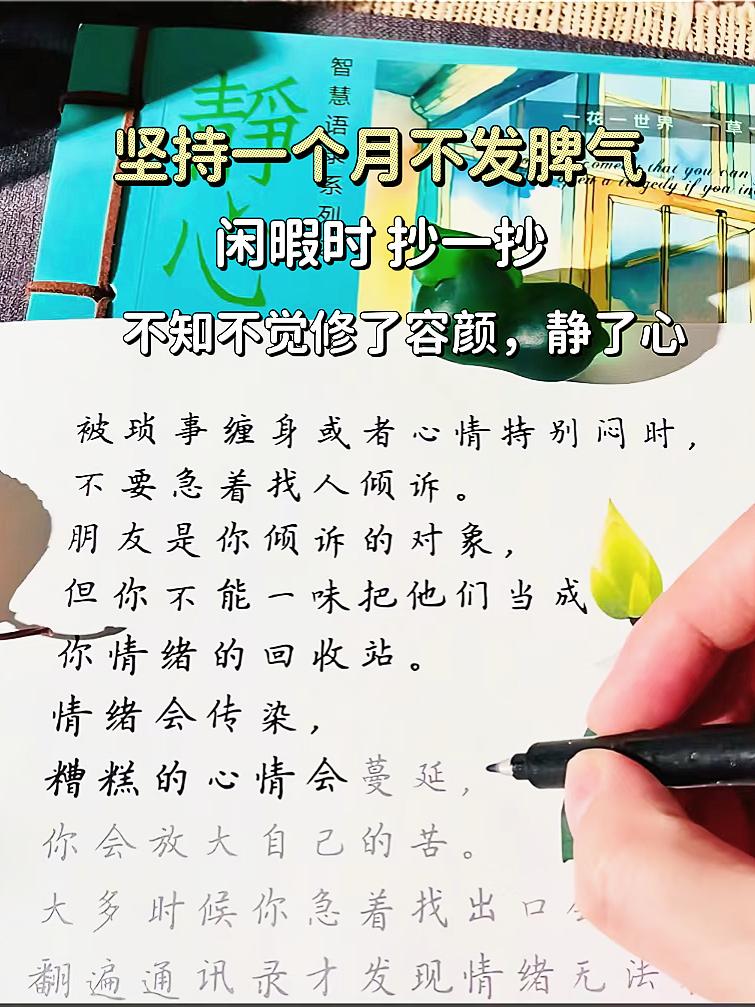 静心
智慧语录系列
一花一世界 一草
坚持一个月不发脾气
闲暇时 抄一抄
不知不觉修了容颜，静了心
被琐事缠身或者心情特别闷时，
不要急着找人倾诉。
朋友是你倾诉的对象，
但你不能一味把他们当成
你情绪的回收站。
情绪会传染，
糟糕的心情会蔓延，
你会放大自己的苦。
大多时候你急着找出口
翻遍通讯录才发现情绪无法